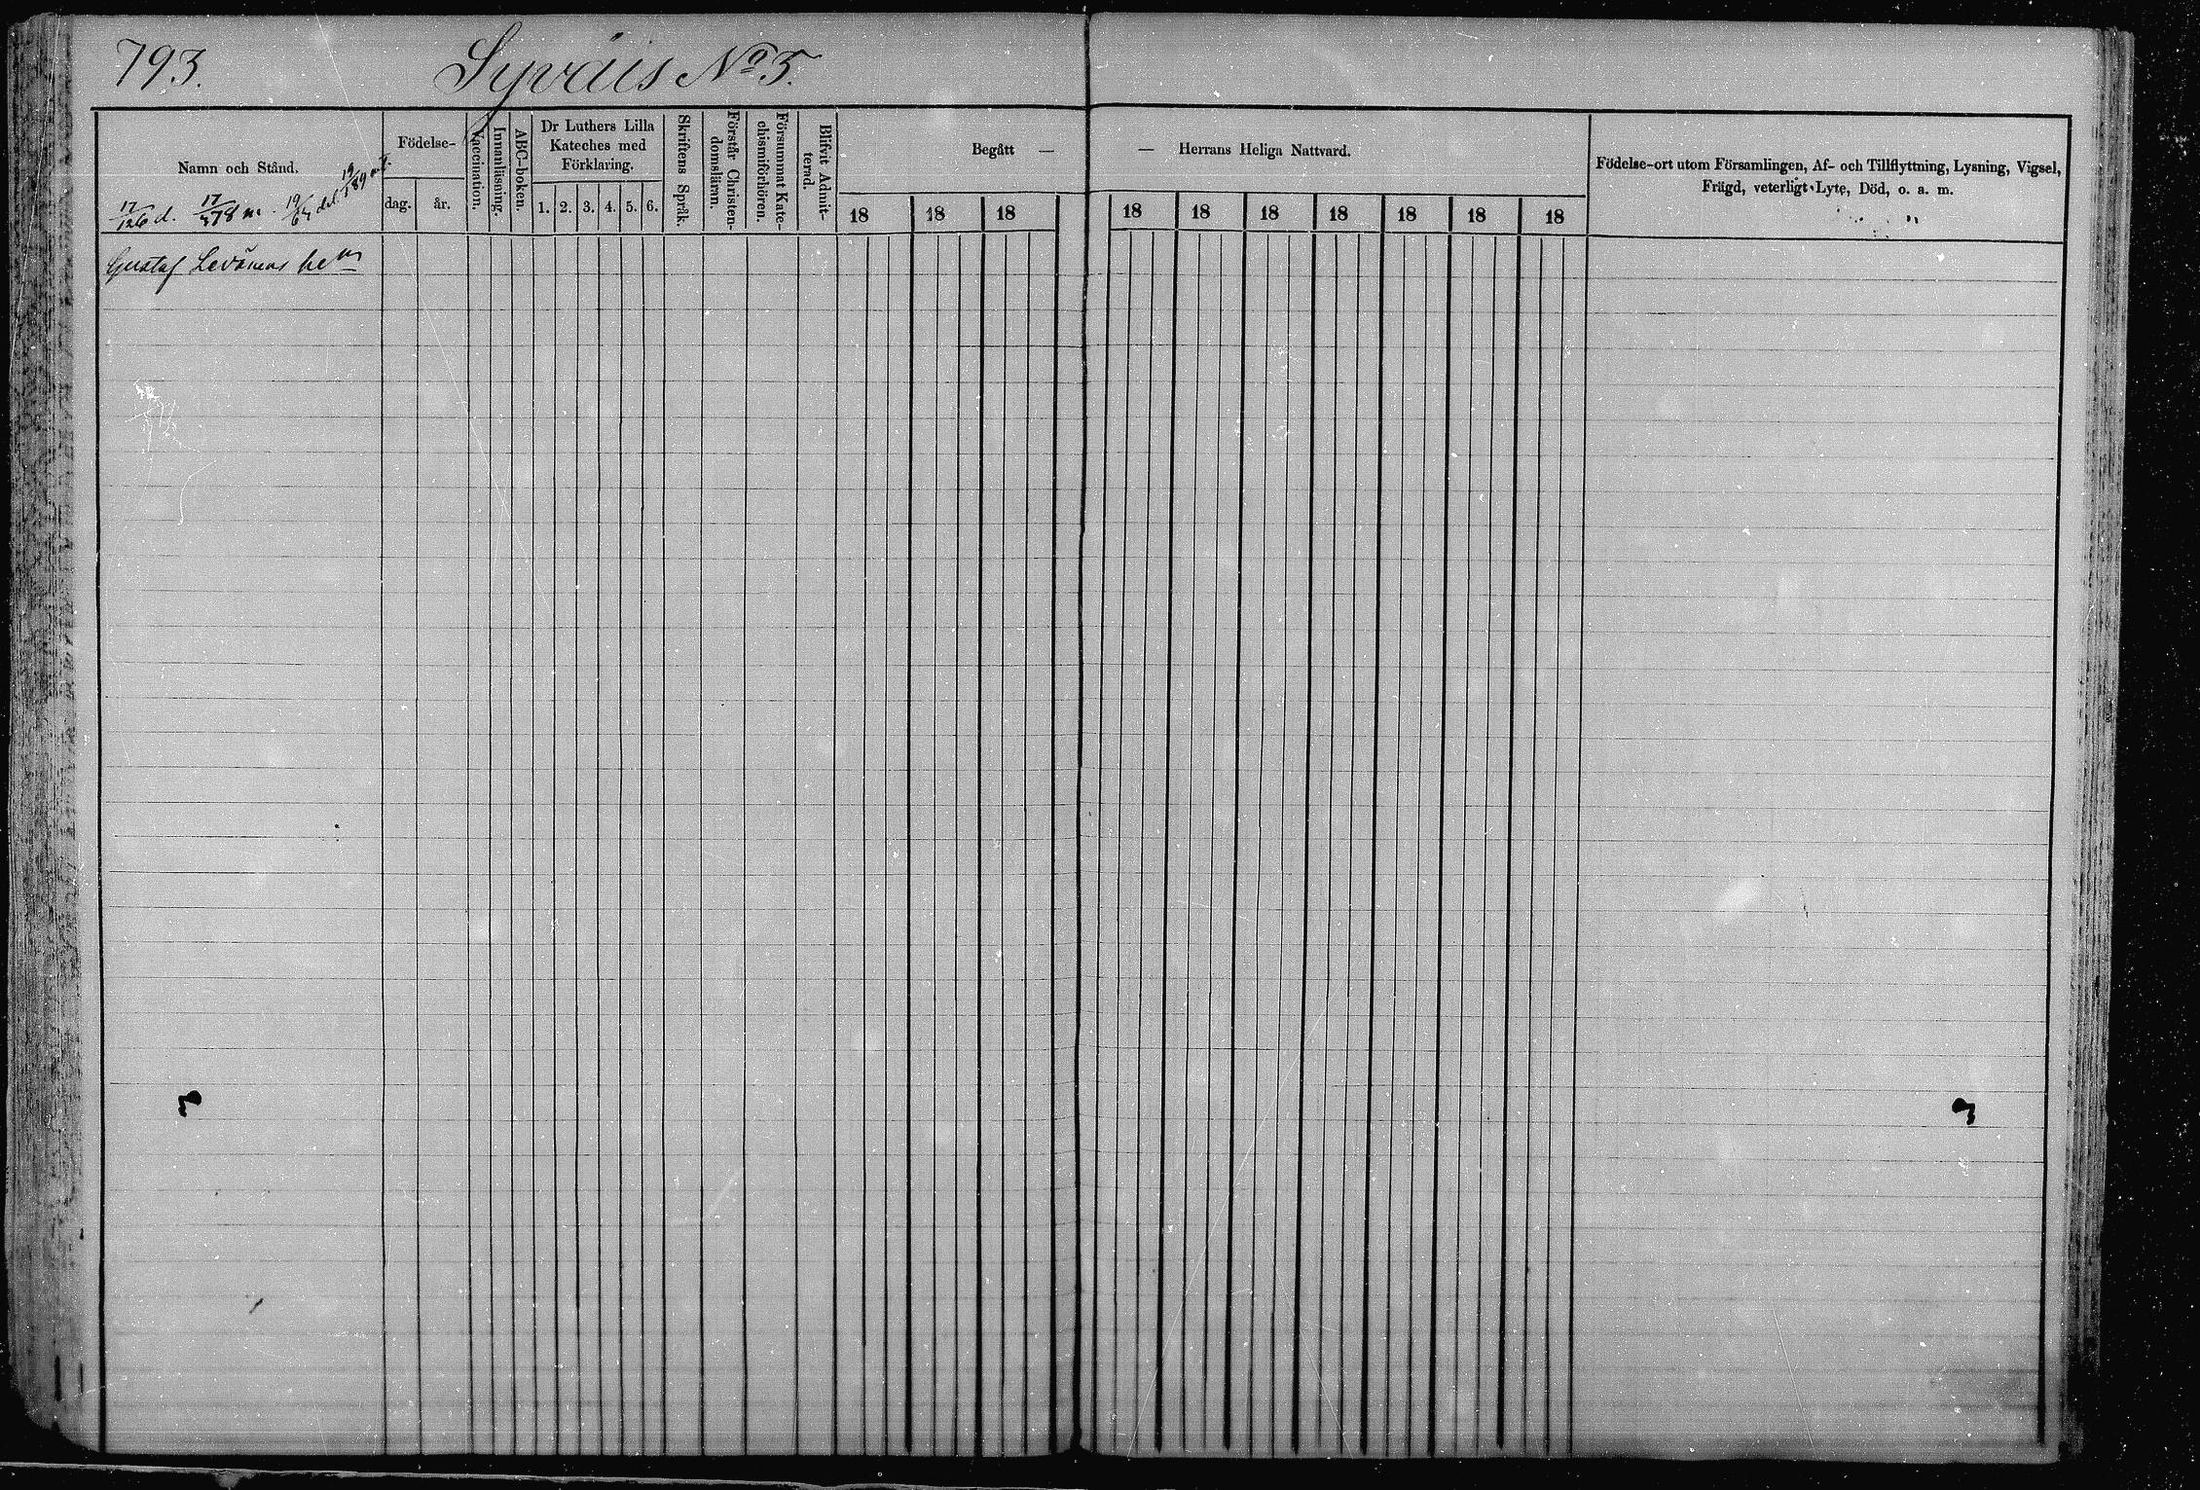 793. Syväis No 5.
Namn och Stånd.
Födelse-
dag. år.
Vaccination.
Innanläsning.
ABC-boken.
Dr Luthers Lilla
Kateches med
Förklaring.
1. 2. 3. 4. 5. 6.
Skriftens Språk.
Förstår Christen-
domsläran.
Försummat Kate-
chismiförhören.
Blifvit Admit-
terad.
Begått — — Herrans Heliga Nattvard.
18 18 18 18 18 18 18 18 18 18
Födelse-ort utom Församlingen, Af- och Tillflyttning, Lysning, Vigsel,
Frägd, veterligt Lyte, Död, o. a. m.
17/126 d. 17/378 m. 19/64 del. 19/189
Gustaf Levänens hem